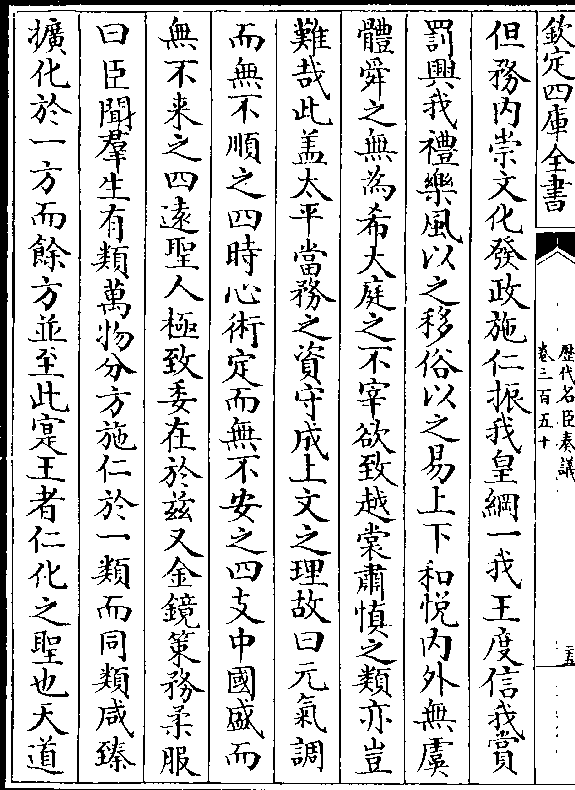 欽定四庫全書
歷代名臣奏議
卷三百五十
二十五
但務内崇文化發政施仁振我皇綱一我王度信我賞
罰興我禮樂風以之移俗以之易上下和悦内外無虞
體舜之無為希大庭之不宰欲致越裳肅慎之類亦豈
難哉此盖太平當務之資守成上文之理故曰元氣調
而無不順之四時心術定而無不安之四支中國盛而
無不来之四遠聖人極致委在於兹又金鏡策務柔服
曰臣聞羣生有類萬物分方施仁於一類而同類咸臻
擴化於一方而餘方並至此寔王者仁化之聖也天道